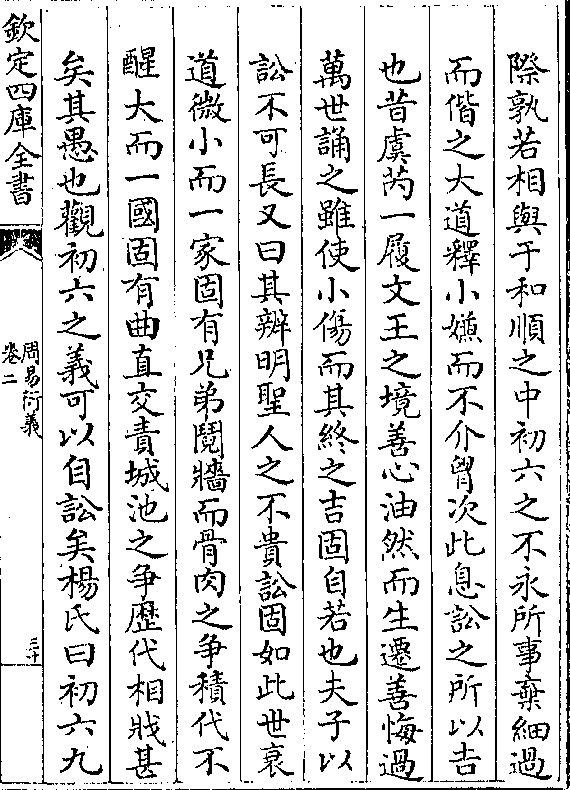 際孰若相與于和順之中初六之不永所事棄細過
而偕之大道釋小嫌而不介胷次此息訟之所以吉
也昔虞芮一履文王之境善心油然而生遷善悔過
萬世誦之雖使小傷而其終之吉固自若也夫子以
訟不可長又曰其辨明聖人之不貴訟固如此世衰
道微小而一家固有兄弟鬩牆而骨肉之争積代不
醒大而一國固有曲直交責城池之争歴代相戕甚
矣其愚也觀初六之義可以自訟矣楊氏曰初六九
欽定四庫全書
周易衍義
卷二
三十